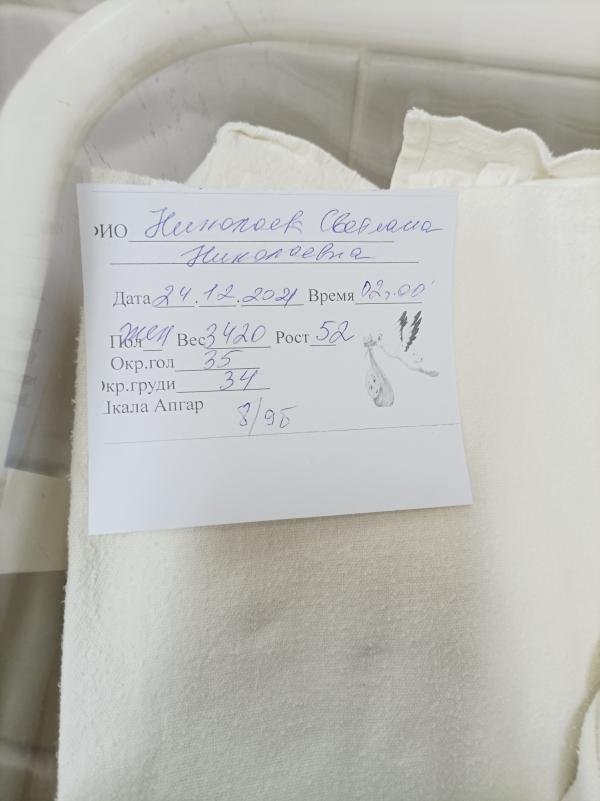 ФИО Николаек Светлана
Николаевна
Дата 24.12.2021 Время 02:00
Пол жен Вес 3420 Рост 52
Окр.гол 35
Окр.груди 34
Шкала Апгар 8/9б